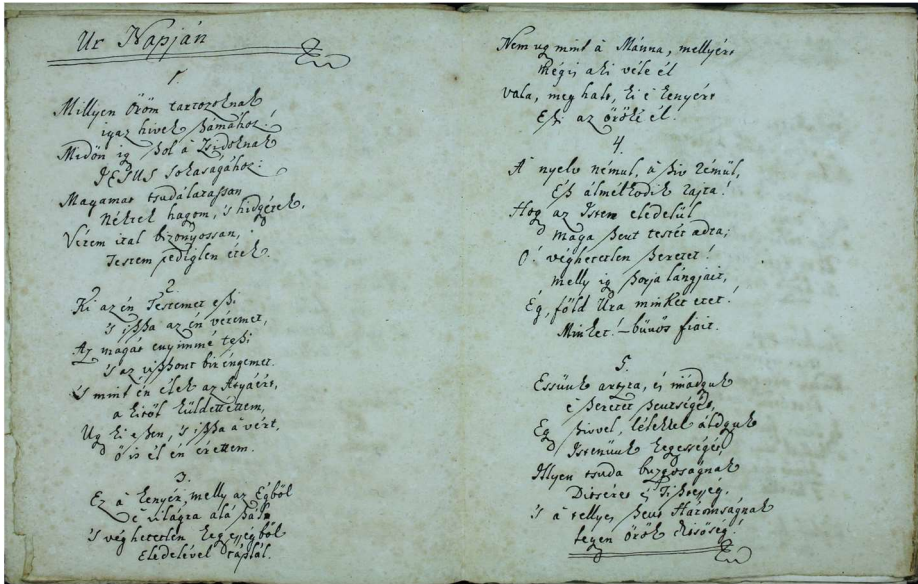 Ur Napján
1.
Millyen öröm tartozoknak
igaz hivek számához!
Midőn ig szol à Zsidoknak
JESUS Sokaságához:
Magamat tsudálatossan
Néktek hagom, 's hidgyétek,
Vérem ital bizonyossan,
Testem pediglen étek.
2.
Ki az én Testemet eszi
's iszsza az én véremet,
Az magát enyimmé teszi
's az viszszont bir éngemet.
's mint én élek az Atyáért,
a kitöl küldettettem,
Ug ki eszen, 's iszsza à vért,
ö is él én érettem.
3.
Ez à kenyér, melly az Égböl
é világra alá szál,
's véghetetlen kegyességböl
eledelével táplál.
Nem ug mint à Mánna, mellyért
Régis aki véle él
vala, meg halt, ki é kenyért
Eszi az örökké él.
4.
A' nyelv némul, à sziv rémül,
És álmélkodik rajta!
Hog az Isten eledelül
maga szent testét adta;
O! véghetetlen szeretet!
melly ig szorja lángjait,
Ég, föld Ura minket etet!
Minket! – bünös fiait.
5.
Essünk arzra, és imádguk
é szeretet szentségét,
Eg szivvel, lélekkel áldguk
Istenünk kegességét,
Illyen tsuda buzgoságnak
Ditséret és Tisztesség,
's à tellyes szent Háromságnak
legyen örök ditsöség!